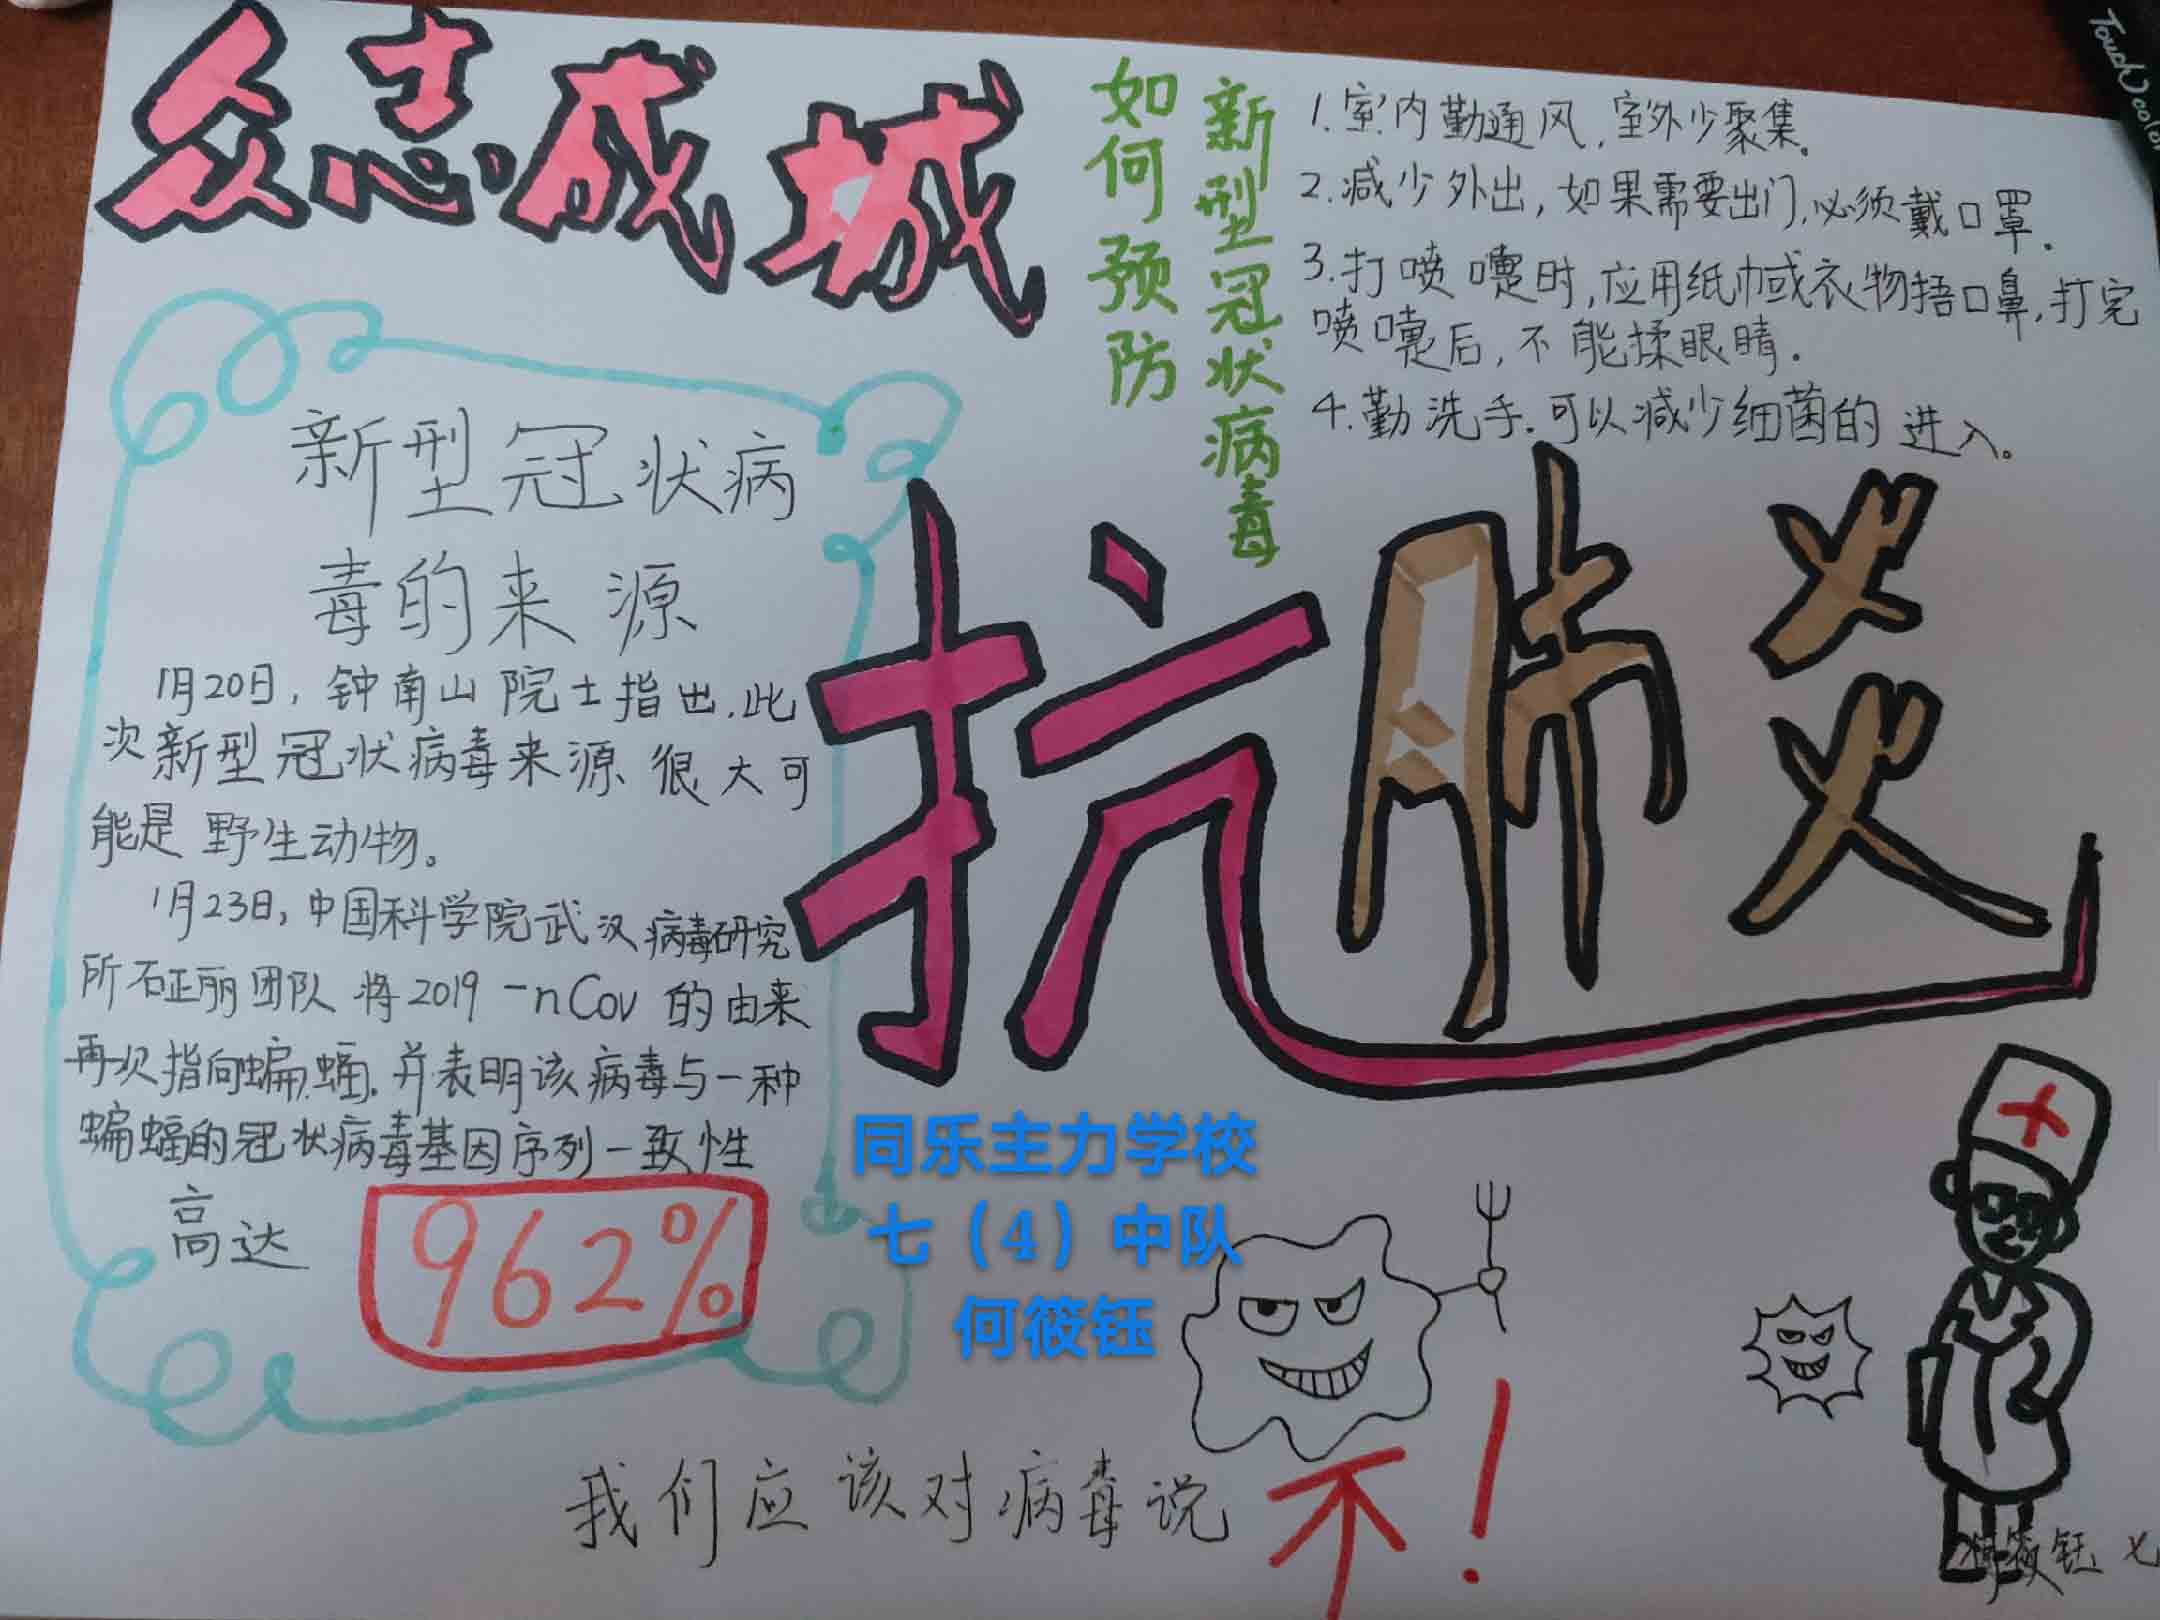 众志成城
如何预防
新型冠状病毒
1.室内勤通风,室外少聚集。
2.减少外出,如果需要出门,必须戴口罩.
3.打喷嚏时,应用纸巾或衣物捂口鼻,打完
喷嚏后,不能揉眼睛.
4.勤洗手.可以减少细菌的进入。
新型冠状病
毒的来源
1月20日,钟南山院士指出,此
次新型冠状病毒来源很大可
能是野生动物。
1月23日,中国科学院武汉病毒研究
所石正丽团队将2019-nCov的由来
再次指向蝙蝠.并表明该病毒与一种
蝙蝠的冠状病毒基因序列一致性
高达
962%
抗肺炎
同乐主力学校
七(4)中队
何筱钰
我们应该对病毒说
不!
何筱钰
Touch